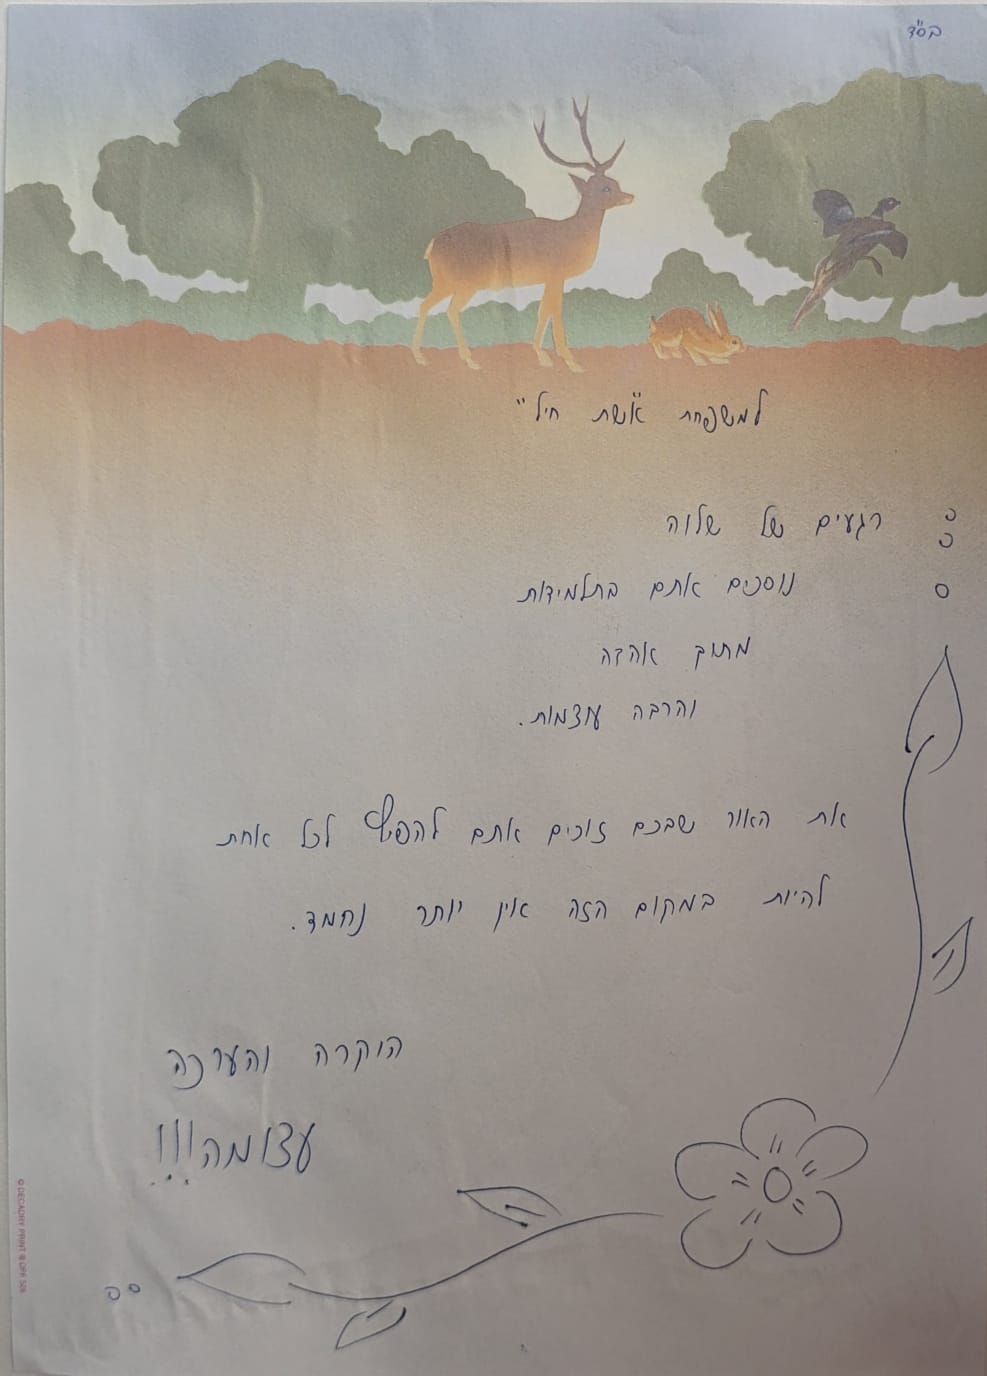 בס"ד
למשפחת "אשת חיל"
רגעים של שלוה
נוסכים אתם בתלמידות
מתוך אהבה
והרבה עוצמות.
את האור שבכם זוכים אתם להפיץ לכל אחת
להיות במקום הזה אין יותר נחמד.
הוקרה והערכה
עצומה!!!
© DECADRY PRINT